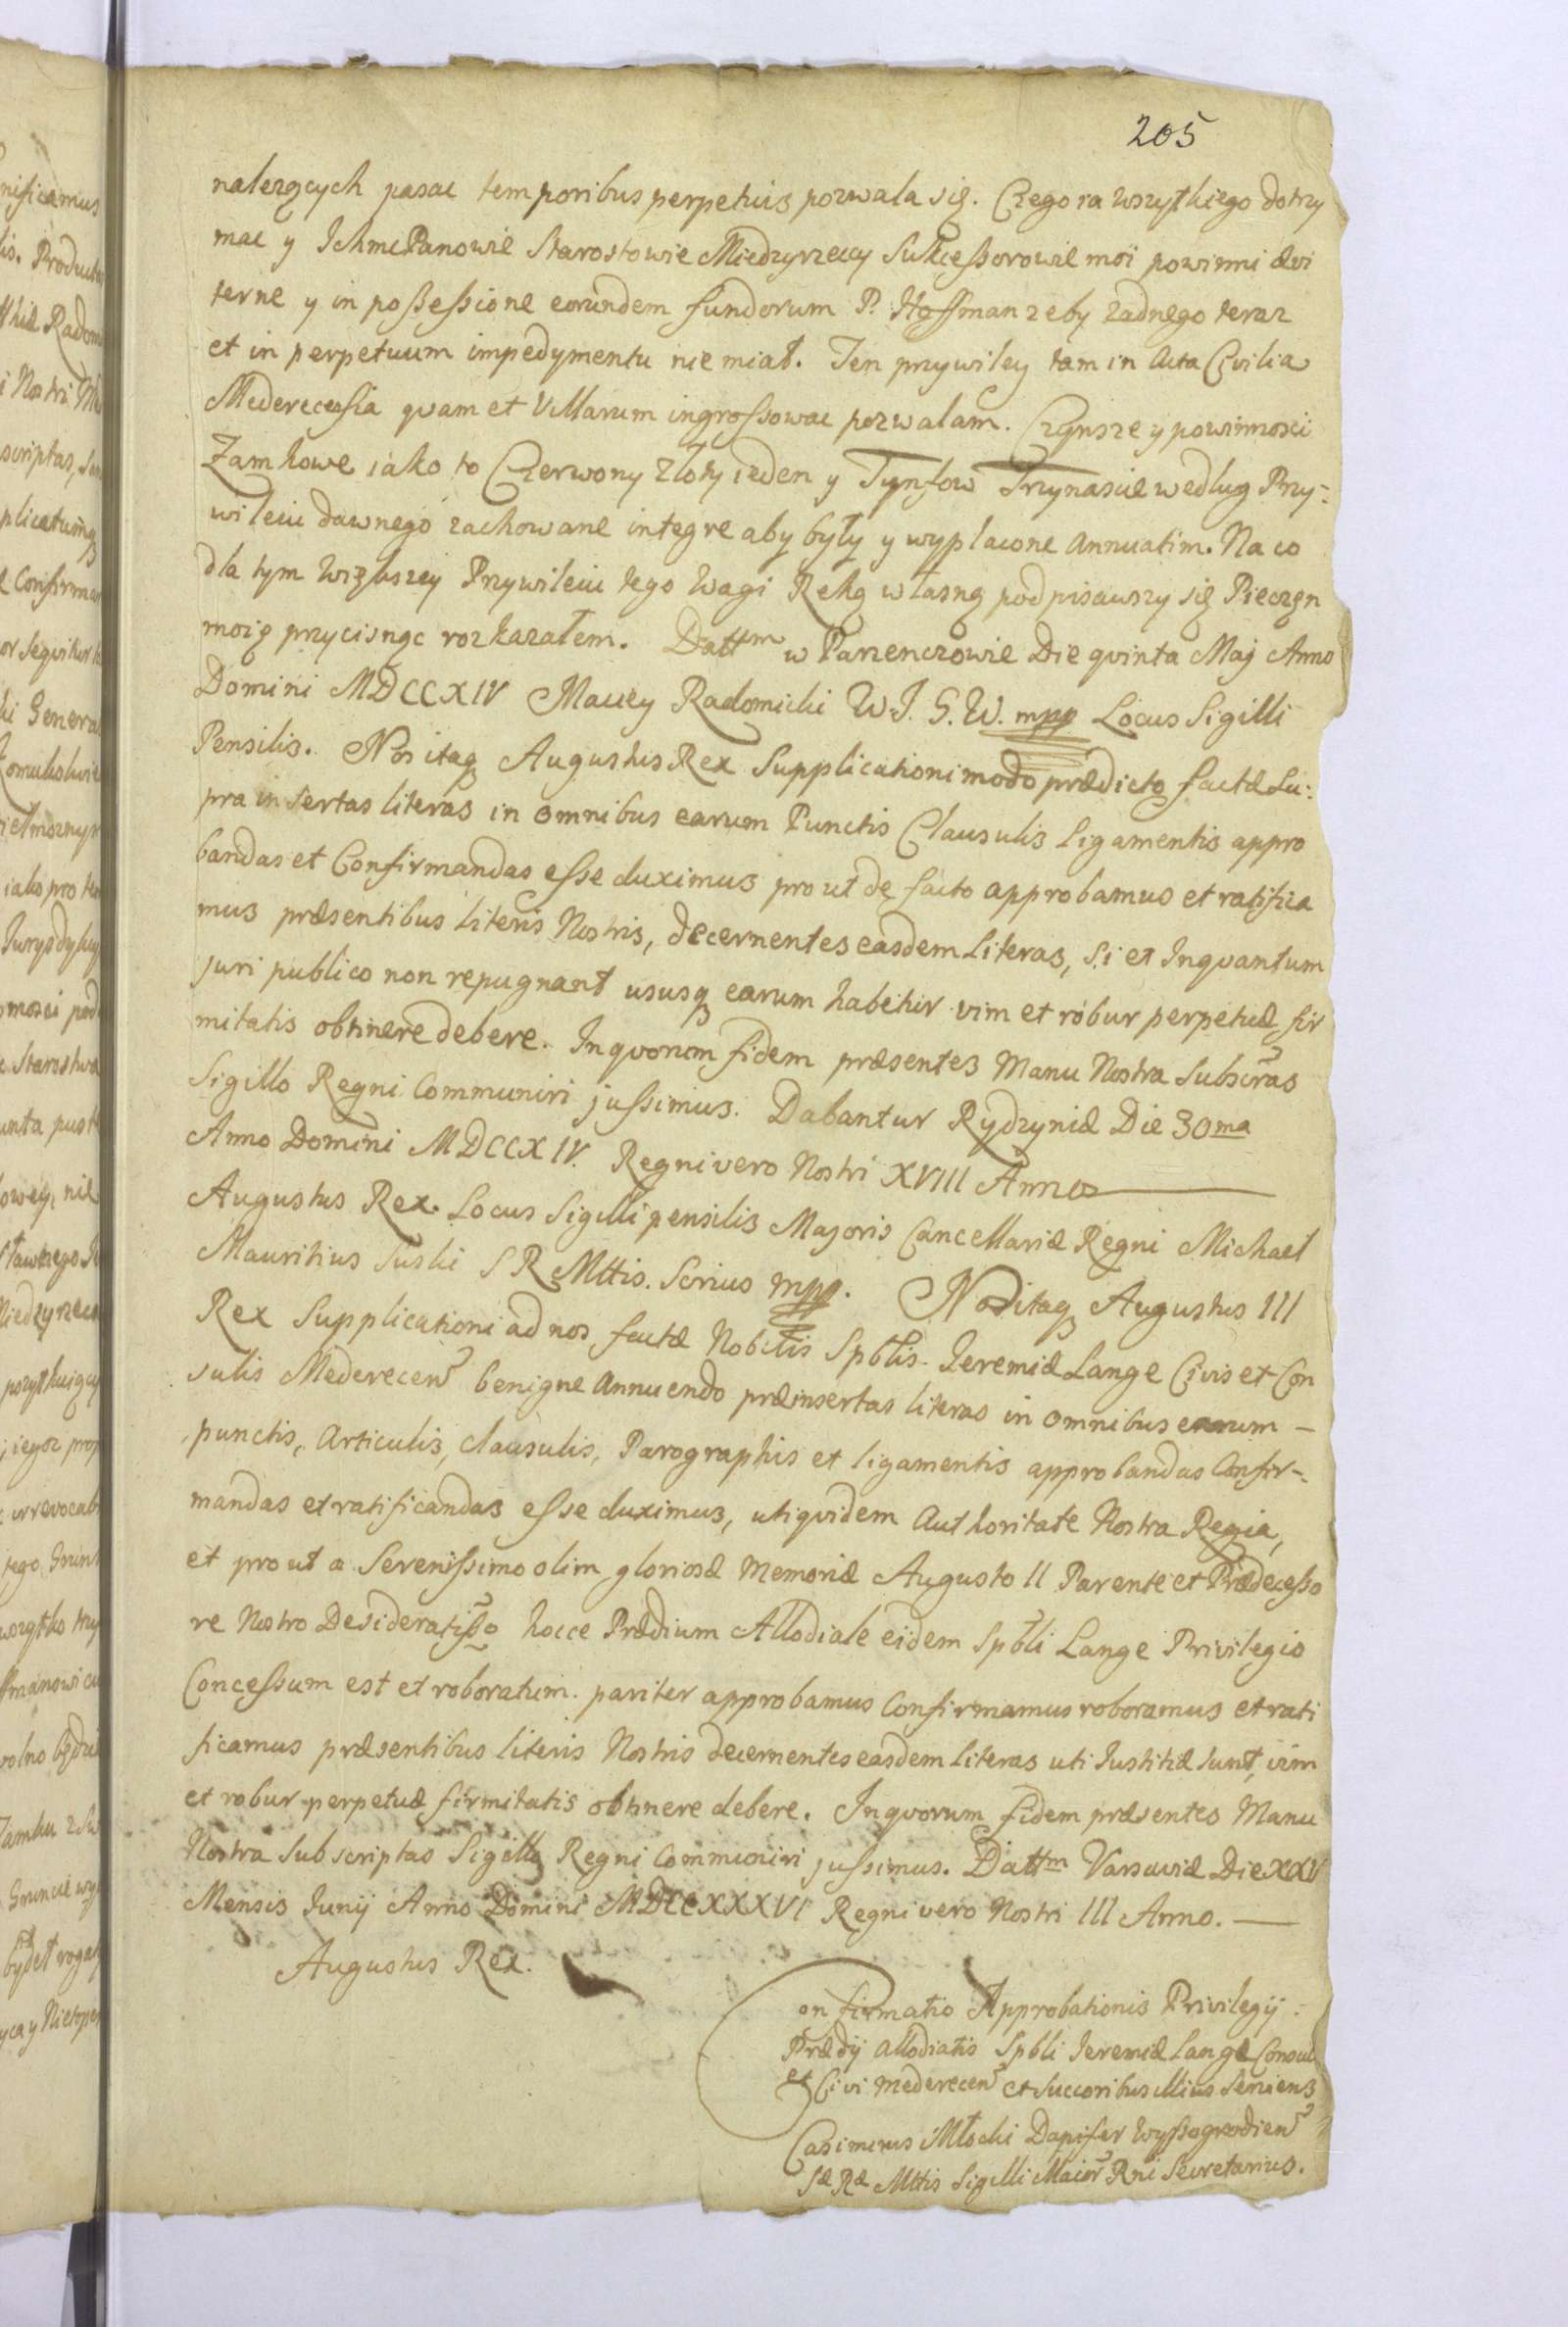 205
należących pasac temporibus perpetuis pozwala się. Czego ra wszytkiego dotrzy
mac y Ichmc Panowie Starostowie Miedzyrzeccy Sukceßorowie moi powinni ævi
terne y in poßeßione eorundem fundorum P. Hoffman zeby zadnego teraz
et in perpetuum impedymentu nie miał. Ten przywiley tam in Acta Civilia
Mederecensia qvam et Villarum ingrossowac pozwalam. Czynsze y powinnosci
Zamkowe iako to Czerwony Złoty ieden y Tynfow Trzynascie według Przy-
wileiu dawnego zachowane integre aby były y wypłacone Annuatim. Na co
dla tym większey Przywileiu tego Wagi Ręką własną podpisawszy się Pieczęn
moię przycisnąc rozkazałem. Dattm w Parzenczowie Die qvinta Maj Anno
Domini MDCCXIV Maciey Radomicki W.J.G.W. mpp Locus Sigilli
Pensilis. Nos itaq Augustus Rex Supplicationi modo prædicto factæ Su:
pra insertas literas in omnibus earum Punctis Clausulis ligamentis appro
bandas et Confirmandas esse duximus pro ut de facto approbamus et ratifica
mus præsentibus literis Nostris, decernentes easdem literas, Si et Inqvantum
juri publico non repugnant ususq earum habetur vim et robur perpetuæ fir
mitatis obtinere debere. In qvorum fidem præsentes Manu Nostra Subscras
Sigillo Regni Communiri jussimus. Dabantur Rydzyniæ Die 30ma
Anno Domini MDCCXIV. Regni vero Nostri XVIII Anno
Augustus Rex. Locus Sigilli pensilis Majoris Cancellariæ Regni Michael
Mauritius Suski S R Mttis. Scrius mpp. Nos itaq Augustus III
Rex Supplicationi ad nos factæ Nobilis Spblis Jeremiæ Lange Civis et Con
sulis Mederecen benigne Annuendo præinsertas literas in omnibus earum -
punctis, Articulis, Clausulis, Parographis et ligamentis approbandas Confir-
mandas et ratificandas esse duximus, uti qvidem Authoritate Nostra Regia,
et pro ut a Serenissimo olim gloriosæ Memoriæ Augusto II Parente et Prædecesso
re Nostro Desideratißo hocce Prædium Allodiale eidem Spbli Lange Privilegio
Concessum est et roboratum. pariter approbamus Confirmamus roboramus et rati
ficamus præsentibus literis Nostris decernentes easdem literas uti Justitiæ sunt, vim
et robur perpetuæ firmitatis obtinere debere. In qvorum fidem præsentes Manu
Nostra Subscriptas Sigillo Regni Communiri jussimus. Dattm Varsaviæ Die XXV
Mensis Junij Anno Domini MDCCXXXVI Regni vero Nostri III Anno.
Augustus Rex.
Confirmatio Approbationis Privilegij
Prædij Allodialis Spbli Jeremiæ Lange Consul
et Civi Mederecen et Succoribus illius Serviens
Casimirus Młocki Dapifer Wyssogrodien
Sæ Ræ Mttis Sigilli Maior Rni Secretarius.